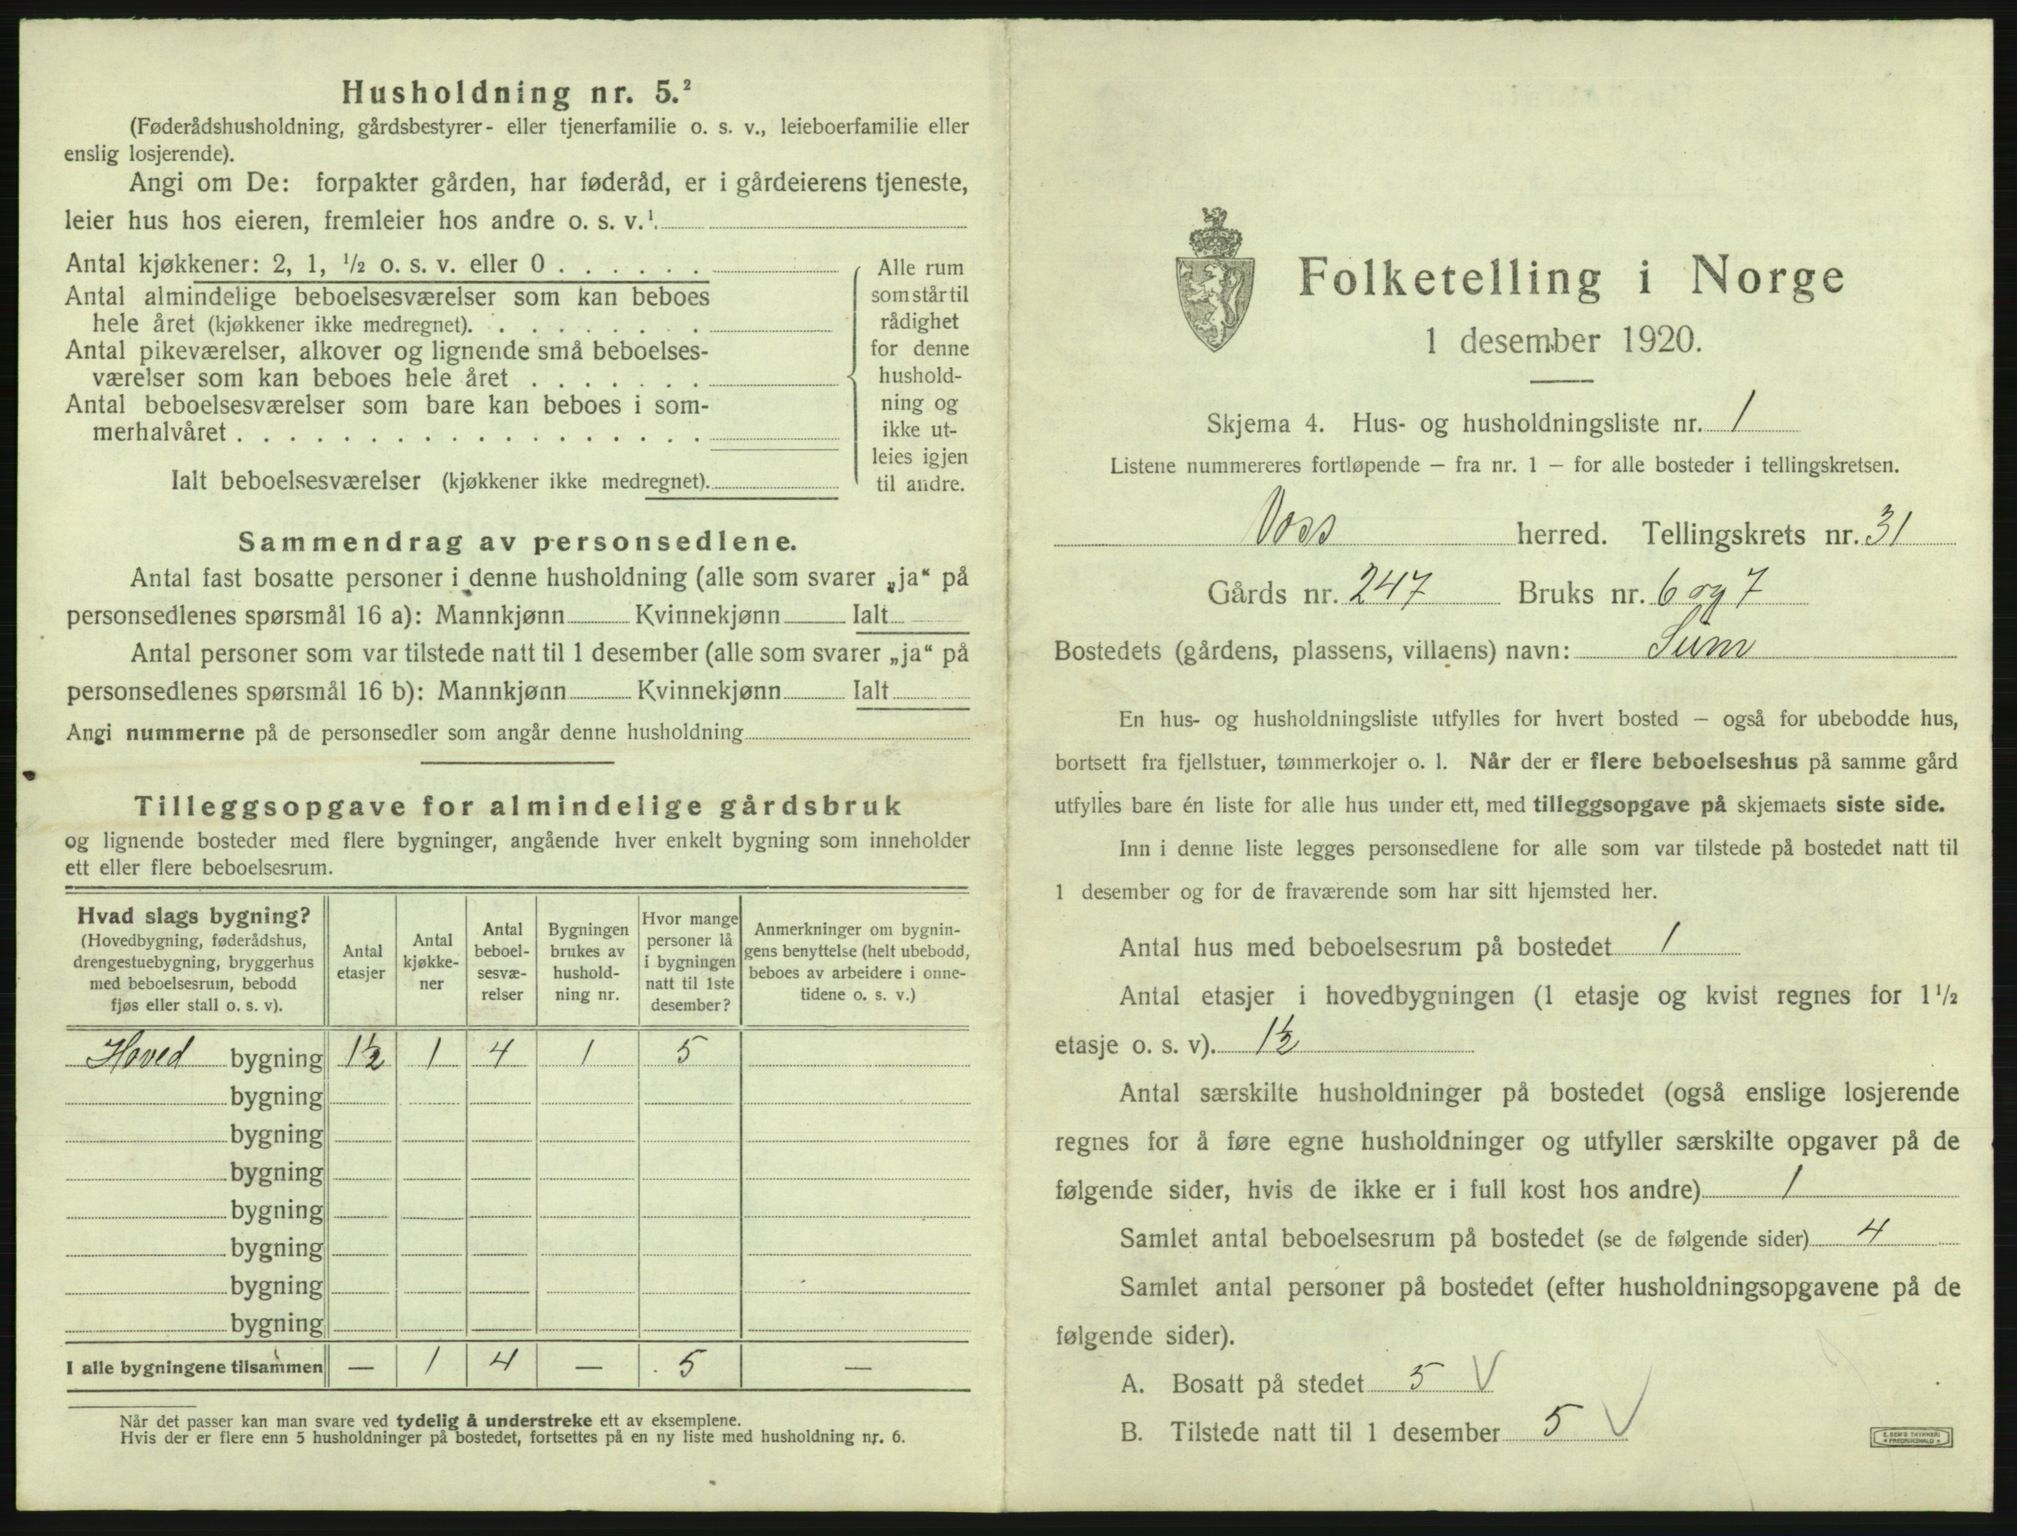 Husholdning nr. 5.²
(Føderådshusholdning, gårdsbestyrer- eller tjenerfamilie o. s. v., leieboerfamilie eller
enslig losjerende).
Angi om De: forpakter gården, har føderåd, er i gårdeierens tjeneste,
leier hus hos eieren, fremleier hos andre o. s. v.¹
Antal kjøkkener: 2, 1, ½ o. s. v. eller 0 . . . . . .
Antal almindelige beboelsesværelser som kan beboes
hele året (kjøkkener ikke medregnet). . . . . . . . .
Antal pikeværelser, alkover og lignende små beboelses-
værelser som kan beboes hele året . . . . . . .
Antal beboelsesværelser som bare kan beboes i som-
merhalvåret . . . . . . . . . . . . . . . . . .
Ialt beboelsesværelser (kjøkkener ikke medregnet).
Alle rum
som står til
rådighet
for denne
hushold-
ning og
ikke ut-
leies igjen
til andre.
Sammendrag av personsedlene.
Antal fast bosatte personer i denne husholdning (alle som svarer „ja“ på
personsedlenes spørsmål 16 a): Mannkjønn Kvinnekjønn Ialt
Antal personer som var tilstede natt til 1 desember (alle som svarer „ja“ på
personsedlenes spørsmål 16 b): Mannkjønn Kvinnekjønn Ialt
Angi nummerne på de personsedler som angår denne husholdning
Tilleggsopgave for almindelige gårdsbruk
og lignende bosteder med flere bygninger, angående hver enkelt bygning som inneholder
ett eller flere beboelsesrum.
Hvad slags bygning?
(Hovedbygning, føderådshus,
drengestuebygning, bryggerhus
med beboelsesrum, bebodd
fjøs eller stall o. s. v).
Antal
etasjer
Antal
kjøkke-
ner
Antal
beboel-
sesvæ-
relser
Bygningen
brukes av
hushold-
ning nr.
Hvor mange
personer lå
i bygningen
natt til 1ste
desember?
Anmerkninger om bygnin-
gens benyttelse (helt ubebodd,
beboes av arbeidere i onne-
tidene o. s. v.)
Hoved bygning 1½ 1 4 1 5
bygning
bygning
bygning
bygning
bygning
bygning
bygning
I alle bygningene tilsammen — 1 4 — 5 —
Når det passer kan man svare ved tydelig å understreke ett av eksemplene.
Hvis der er flere enn 5 husholdninger på bostedet, fortsettes på en ny liste med husholdning nr. 6.
Folketelling i Norge
1 desember 1920.
Skjema 4. Hus- og husholdningsliste nr. 1
Listene nummereres fortløpende – fra nr. 1 – for alle bosteder i tellingskretsen.
Voss herred. Tellingskrets nr. 31
Gårds nr. 247 Bruks nr. 6 og 7
Bostedets (gårdens, plassens, villaens) navn:
En hus- og husholdningsliste utfylles for hvert bosted – også for ubebodde hus,
bortsett fra fjellstuer, tømmerkojer o. l. Når der er flere beboelseshus på samme gård
utfylles bare én liste for alle hus under ett, med tilleggsopgave på skjemaets siste side.
Inn i denne liste legges personsedlene for alle som var tilstede på bostedet natt til
1 desember og for de fraværende som har sitt hjemsted her.
Antal hus med beboelsesrum på bostedet 1
Antal etasjer i hovedbygningen (1 etasje og kvist regnes for 1½
etasje o. s. v). 1½
Antal særskilte husholdninger på bostedet (også enslige losjerende
regnes for å føre egne husholdninger og utfyller særskilte opgaver på de
følgende sider, hvis de ikke er i full kost hos andre) 1
Samlet antal beboelsesrum på bostedet (se de følgende sider) 4
Samlet antal personer på bostedet (efter husholdningsopgavene på de
følgende sider).
A. Bosatt på stedet 5 V
B. Tilstede natt til 1 desember 5 V